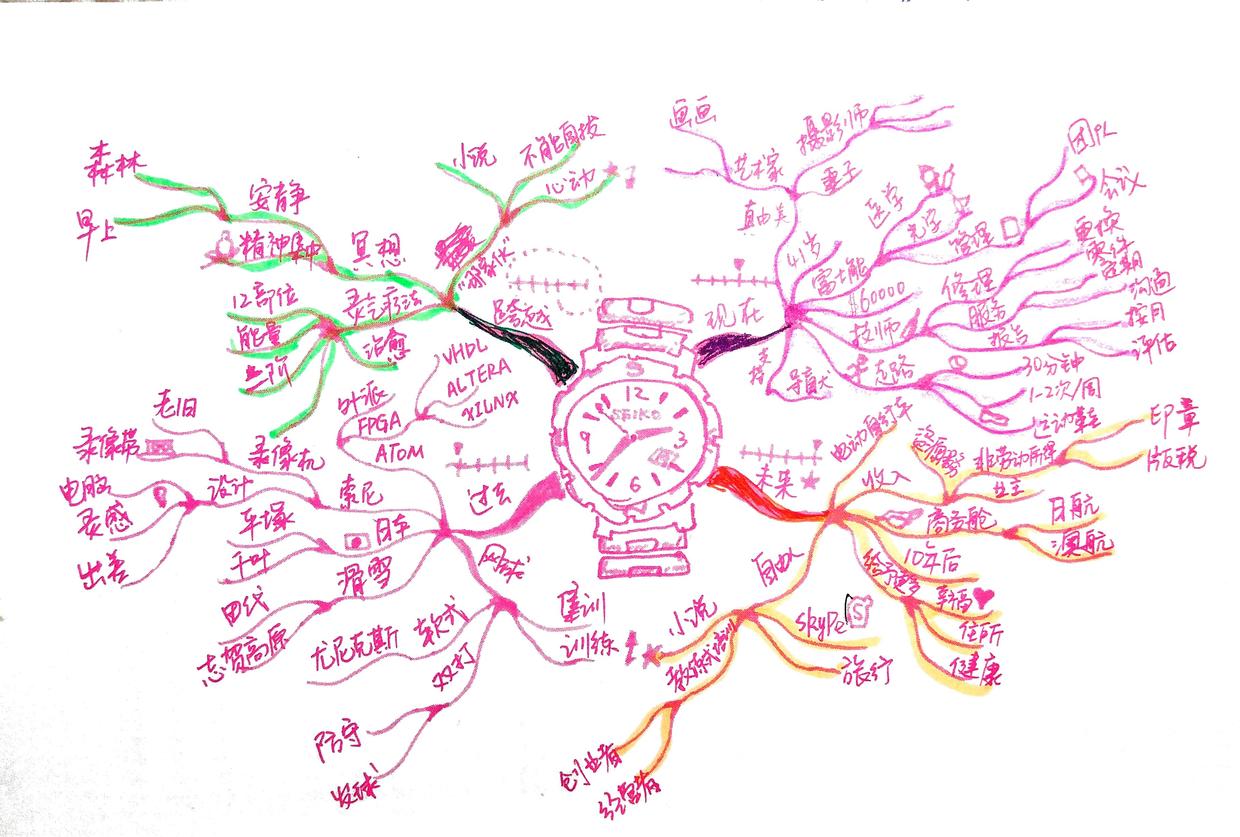 画画
艺术家
摄影师
妻子
真由美
41岁
医学
光学
富士能
$60000
管理
团队
会议
修理
更换
零件
定期
服务
沟通
技师
报告
按月
评估
走路
30分钟
1-2次/周
运动鞋
支持
导盲犬
现在
小说
不能自拔
心动
"探索伙"
跨越
森林
早上
安静
精神集中
冥想
灵气疗法
12部位
能量
治愈
VHDL
ALTERA
XILNX
FPGA
ATOM
老旧
录像带
录像机
电脑
灵感
设计
出差
索尼
车塚
千叶
日车
过去
滑雪
田代
志贺高原
网球
集训
训练
软式
尤尼克斯
双打
防守
发球
12
SEIKO
9
3
6
未来
电动自行车
收入
非劳动所得
印章
版税
业主
商务舱
日航
澳航
10年后
给予更多
幸福
住所
健康
自由
小说
Skype
S
旅行
教练式培训
创业者
经营者